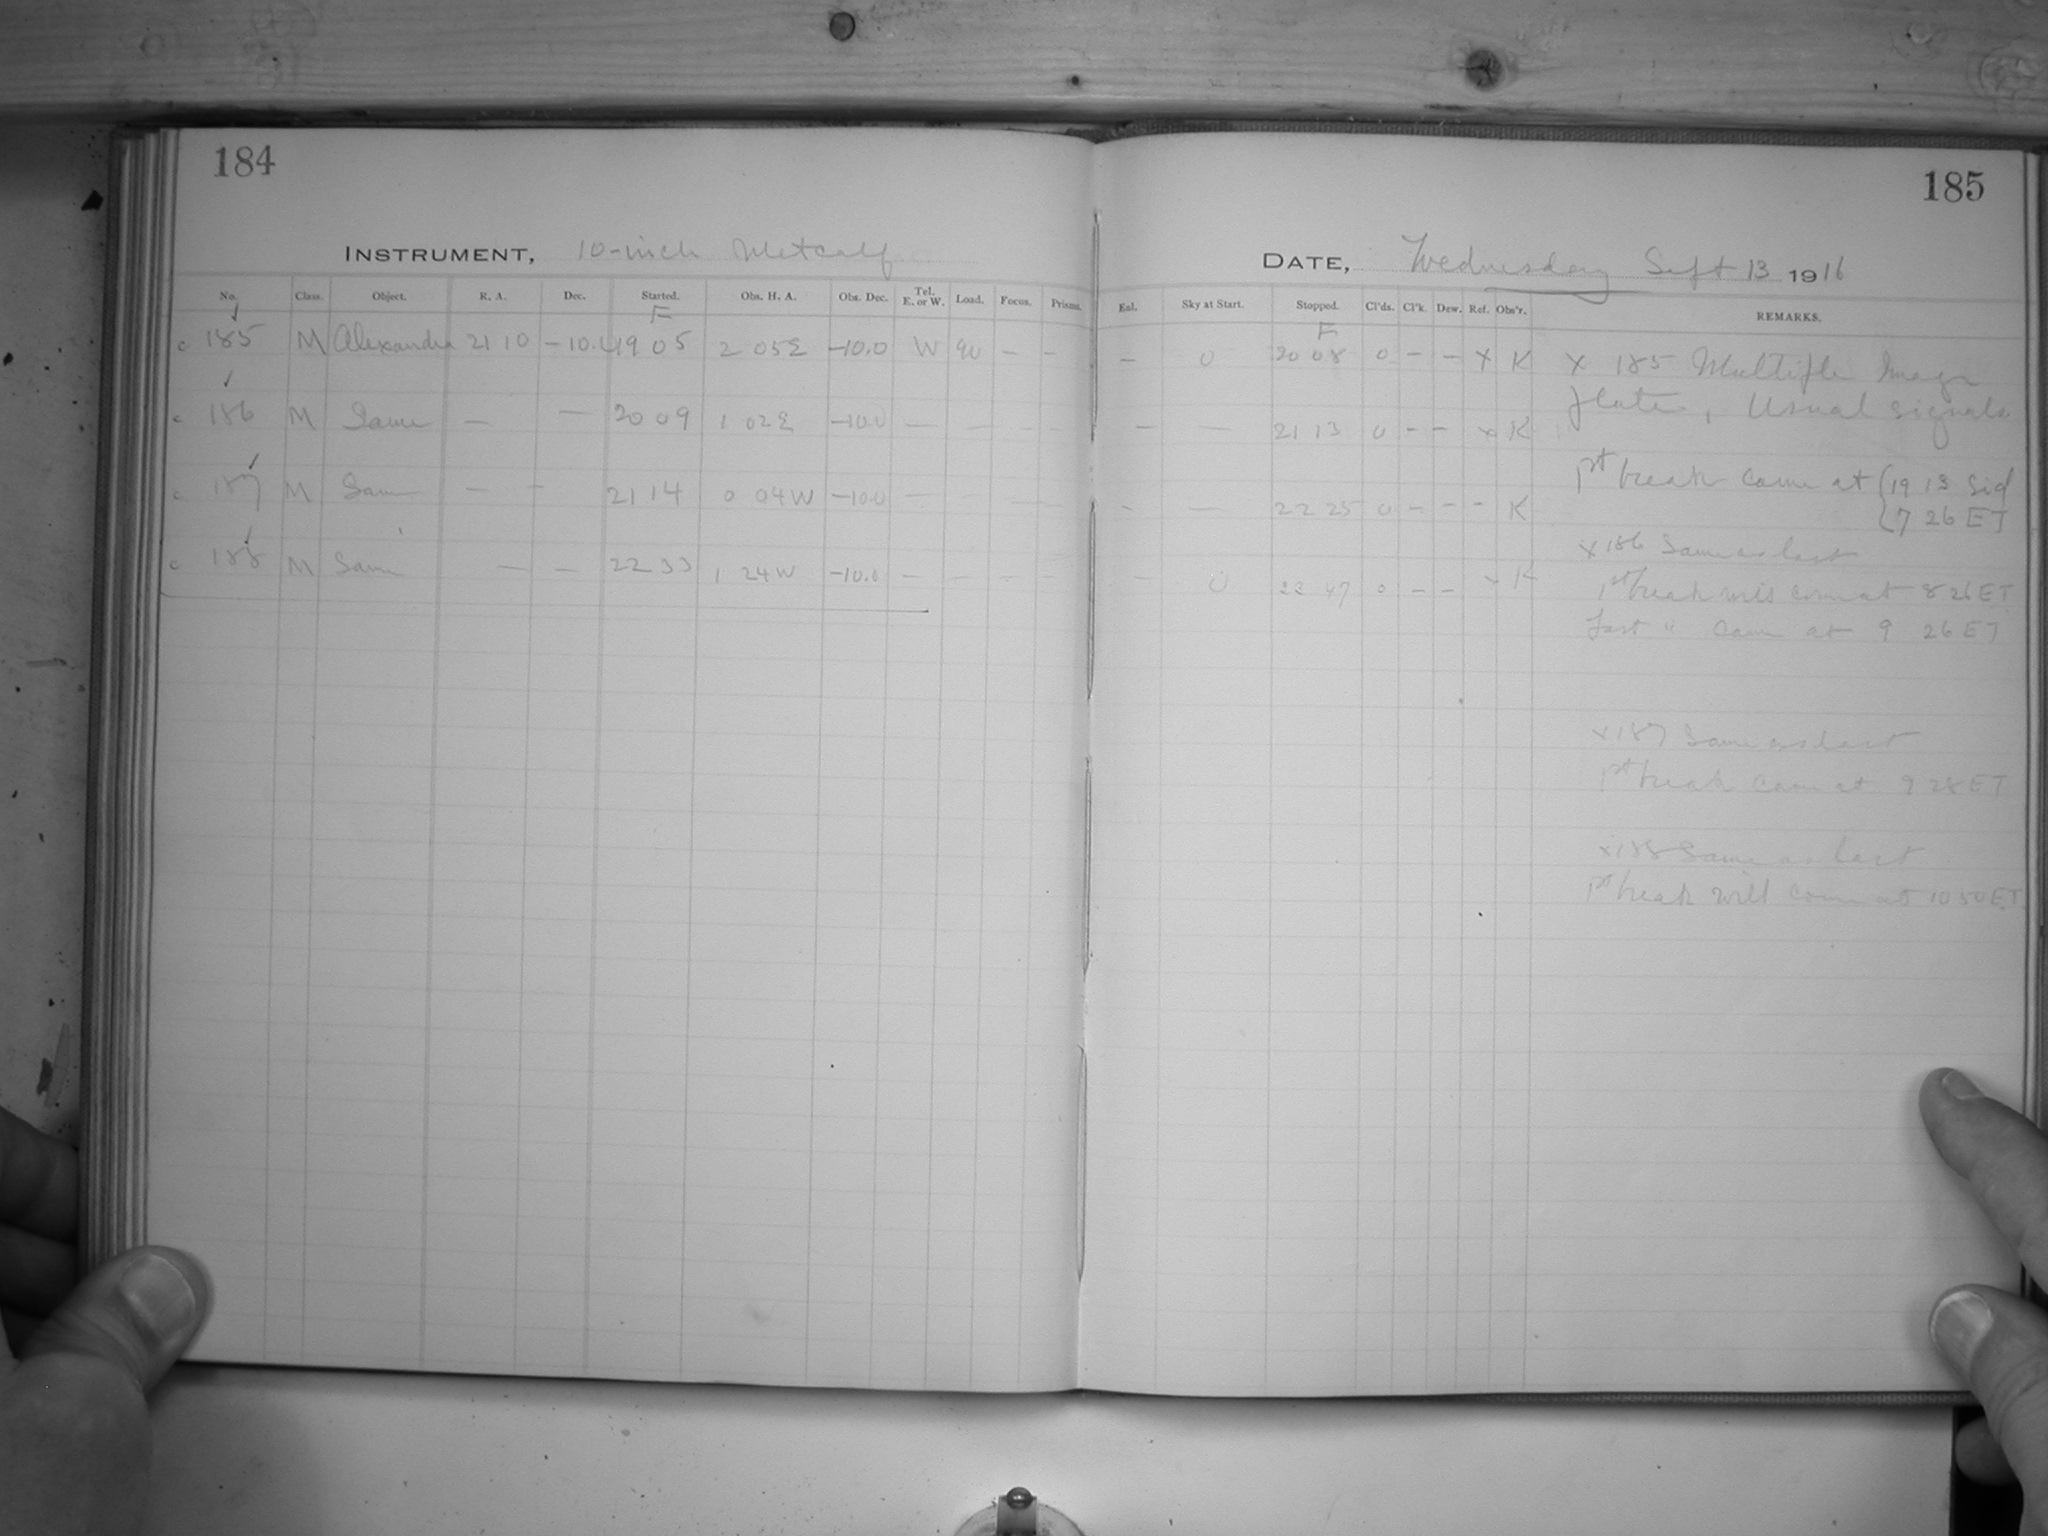 184
185
INSTRUMENT, 10-inch Metcalf
DATE, Wednesday Sept 13 1916
No. Class. Object. R. A. Dec. Started. Obs. H. A. Obs. Dec. Tel. E. or W. Load. Focus. Prisms.
Enl. Sky at Start. Stopped. Cl'ds. Cl'k. Dew. Ref. Obs'r. REMARKS.
F
F
c 185 M Alexandra 21 10 -10.0 19 05 2 05 E -10.0 W 90 - -
- 0 20 08 0 - - x K x 185 Multiple Image
plate, Usual signals
c 186 M Same - - 20 09 1 02 E -10.0 - - - -
- - 21 13 0 - - x K
1st break came at { 19 13 Sid
{ 7 26 ET
c 187 M Same - - 21 14 0 04 W -10.0 - - -
- - 22 25 0 - - - K
x 186 Same as last
c 188 M Same - - 22 33 1 24 W -10.0 - - - -
- 0 23 47 0 - - x K
1st break will come at 8 26 ET
Last " came at 9 26 ET
x 187 Same as last
1st break came at 9 28 ET
x 188 Same as last
1st break will come at 10 50 ET